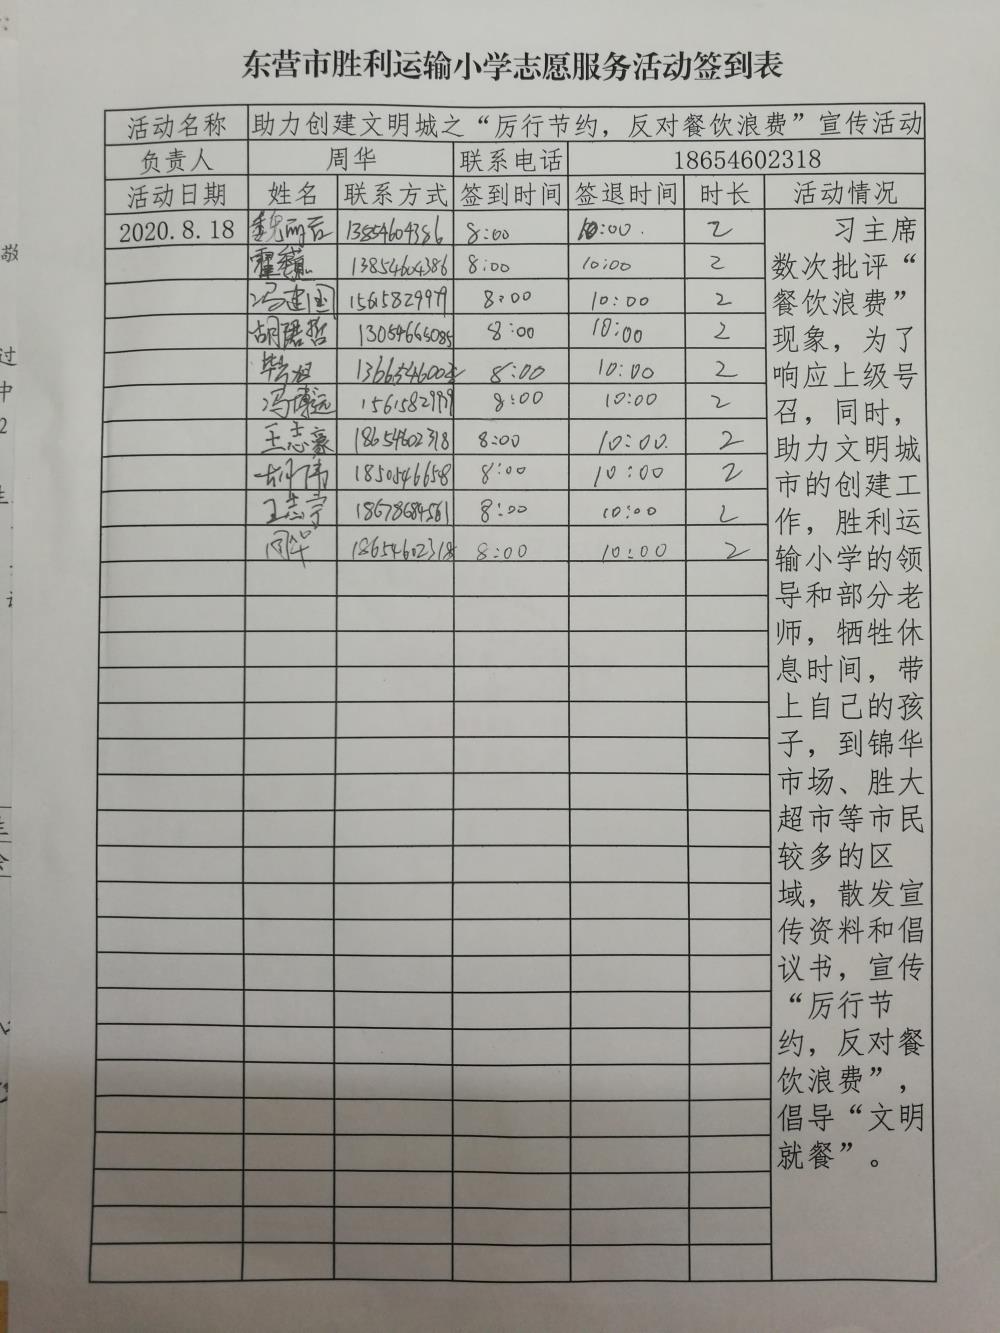 东营市胜利运输小学志愿服务活动签到表
活动名称 助力创建文明城之“厉行节约，反对餐饮浪费”宣传活动
负责人 周华 联系电话 18654602318
活动日期 姓名 联系方式 签到时间 签退时间 时长 活动情况
2020.8.18 13854604386 8:00 10:00. 2
13854604386 8:00 10:00 2
冯建国 15615829979 8:00 10:00 2
胡珺哲 13054665085 8:00 10:00 2
8:00 10:00 2
冯博远 15615829979 8:00 10:00 2
王志豪 18654602318 8:00 10:00. 2
1850546658 8:00 10:00 2
王志宇 18678684561 8:00 10:00 2
周华 18654602318 8:00 10:00 2
习主席
数次批评“
餐饮浪费”
现象，为了
响应上级号
召，同时，
助力文明城
市的创建工
作，胜利运
输小学的领
导和部分老
师，牺牲休
息时间，带
上自己的孩
子，到锦华
市场、胜大
超市等市民
较多的区
域，散发宣
传资料和倡
议书，宣传
“厉行节
约，反对餐
饮浪费”，
倡导“文明
就餐”。